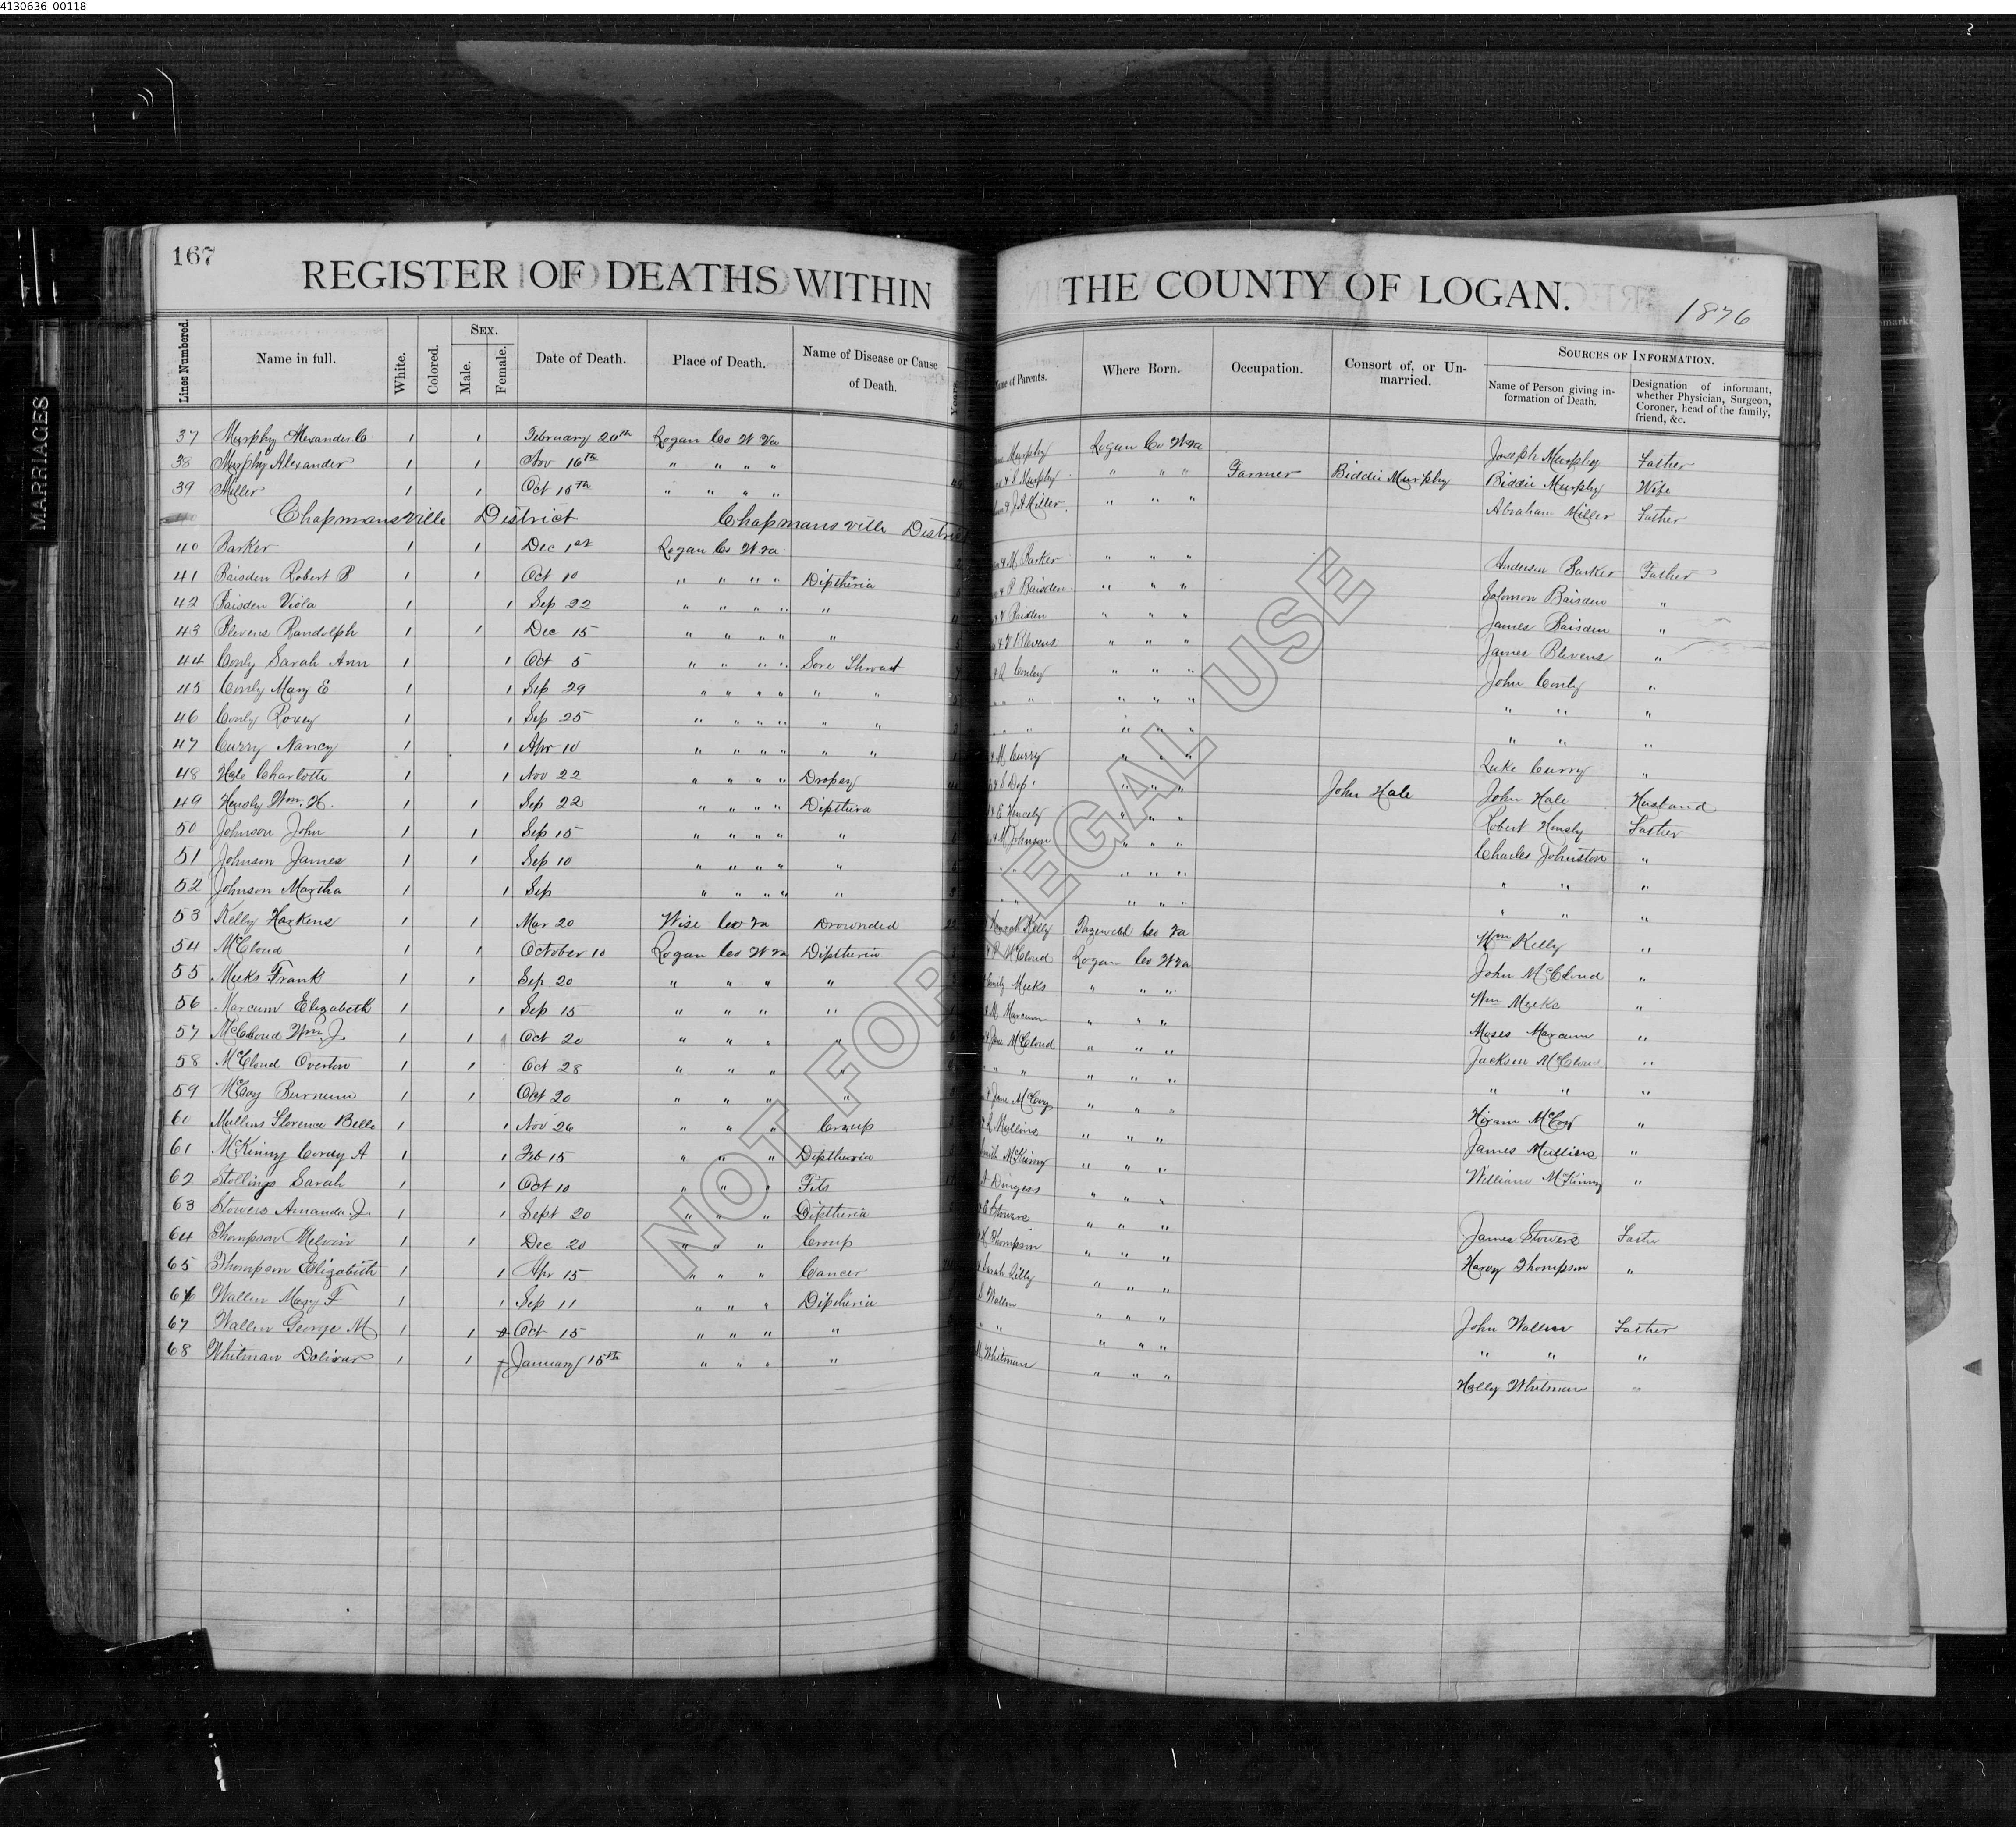 4130636_00118
MARRIAGES
167
REGISTER OF DEATHS WITHIN THE COUNTY OF LOGAN.
1876
Lines Numbered. Name in full. White. Colored. Sex. Male. Female. Date of Death. Place of Death. Name of Disease or Cause of Death. Years. Name of Parents. Where Born. Occupation. Consort of, or Unmarried. Sources of Information. Name of Person giving information of Death. Designation of informant, whether Physician, Surgeon, Coroner, head of the family, friend, &c.
37 Murphy Alexander C 1 1 February 20th Logan Co W Va Murphy Logan Co W Va Joseph Murphy Father
38 Murphy Alexander 1 1 Nov 16th " " " " & S Murphy " " " Farmer Biddie Murphy Biddie Murphy Wife
39 Miller 1 1 Oct 15th " " " " & J A Miller " " " Abraham Miller Father
Chapmansville District Chapmansville District
40 Barker 1 1 Dec 1st Logan Co W Va & M Barker " " " Anderson Barker Father
41 Baisden Robert B 1 1 Oct 10 " " " " Diptheria & P Baisden " " " Solomon Baisden "
42 Baisden Viola 1 1 Sep 22 " " " " " & V Baisden " " " James Baisden "
43 Blevens Randolph 1 1 Dec 15 " " " " " & V Blevens " " " James Blevens "
44 Conly Sarah Ann 1 1 Oct 5 " " " " Sore Throat Conley " " " John Conly "
45 Conly Mary E 1 1 Sep 29 " " " " " " " " " " " " " "
46 Conly Roxey 1 1 Sep 25 " " " " " " " " " " " " " "
47 Curry Nancy 1 1 Apr 10 " " " " " " & M Curry " " " Luke Curry "
48 Hale Charlotte 1 1 Nov 22 " " " " Dropsy " " " John Hale John Hale Husband
49 Hensly Wm. H. 1 1 Sep 22 " " " " Dipthira & E Hencely " " " Robert Hensly Father
50 Johnson John 1 1 Sep 15 " " " " " & M Johnson " " " Charles Johnston "
51 Johnson James 1 1 Sep 10 " " " " " " " " " " " " "
52 Johnson Martha 1 1 Sep " " " " " " " " " " " " "
53 Kelly Harkens 1 1 Mar 20 Wise Co Va Drownded 22 Hannah Kelly Tazewell Co Va Wm Kelly "
54 McCloud 1 1 October 10 Logan Co W Va Diptheria McCloud Logan Co W Va John McCloud "
55 Meeks Frank 1 1 Sep 20 " " " " Emily Meeks " " " Wm Meeks "
56 Marcum Elizabeth 1 1 Sep 15 " " " " & M Marcum " " " Moses Marcum "
57 McCloud Wm. J. 1 1 Oct 20 " " " " & Jane McCloud " " " Jackson McCloud "
58 McCloud Overton 1 1 Oct 28 " " " " " " " " " " " "
59 McCoy Burnum 1 1 Oct 20 " " " " & Jane McCoy " " " Hiram McCoy "
60 Mullins Florence Belle 1 1 Nov 26 " " " Croup Mullins " " " James Mullins "
61 McKinny Cordy A 1 1 Feb 15 " " " Diptheria McKinny " " " William McKinny "
62 Stollings Sarah 1 1 Oct 10 " " " Fits Dingess " " "
63 Stowers Amanda J. 1 1 Sept 20 " " " Diptheria & E Stowers " " " James Stowers Father
64 Thompson Melvin 1 1 Dec 20 " " " Croup Thompson " " " Harvy Thompson "
65 Thompson Elizabeth 1 1 Apr 15 " " " Cancer Sarah Lilly " " "
66 Wallen Mary F 1 1 Sep 11 " " " Diptheria Wallen " " " John Wallen Father
67 Wallen George M 1 1 Oct 15 " " " " " " " " " " " "
68 Whitman Dolivar 1 1 January 15th " " " " M Whitman " " " Holly Whitman "
NOT FOR LEGAL USE